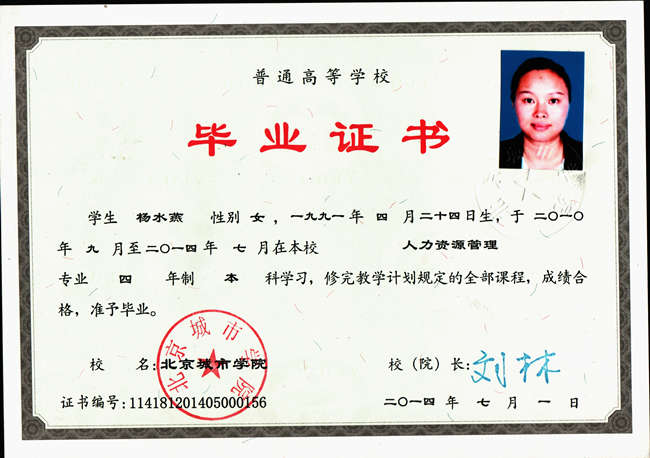 普通高等学校
毕业证书
学生 杨水燕 性别 女，一九九一年 四 月二十四日生，于 二〇一〇
年 九 月至二〇一四年 七 月在本校 人力资源管理
专业 四 年制 本 科学习，修完教学计划规定的全部课程，成绩合
格，准予毕业。
校 名：北京城市学院 校（院）长：刘林
北京城市学院
证书编号：114181201405000156 二〇一四 年 七 月 一 日